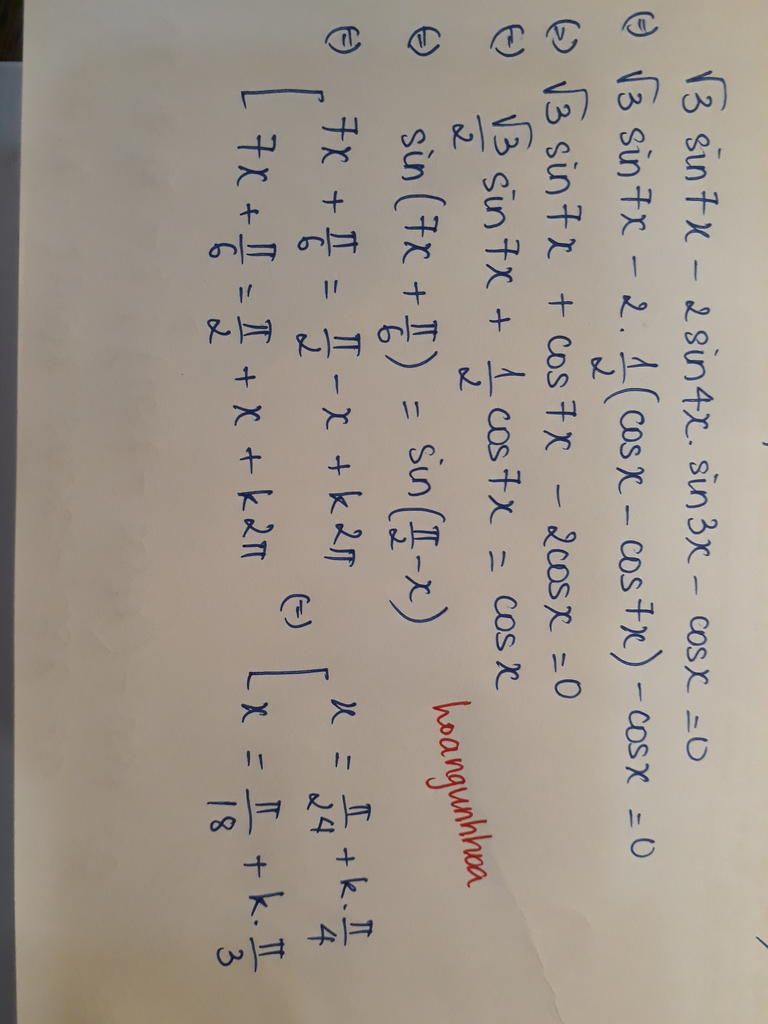 √3 sin7x - 2sin4x.sin3x - cosx = 0
(=) √3 sin7x - 2.1/2(cosx - cos7x) - cosx = 0
(=) √3 sin7x + cos7x - 2cosx = 0
(=) √3/2 sin7x + 1/2 cos7x = cosx
(=) sin(7x + π/6) = sin(π/2 - x)
hoangunhhoa
(=) [ 7x + π/6 = π/2 - x + k2π
7x + π/6 = π/2 + x + k2π
(=) [ x = π/24 + k.π/4
x = π/18 + k.π/3